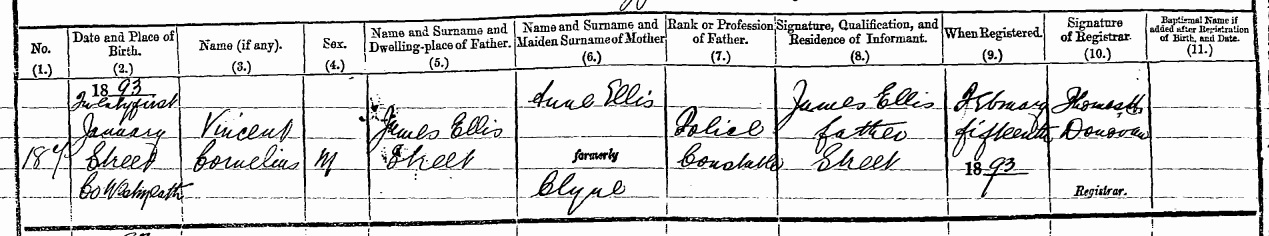 No.
(1.)
Date and Place of
Birth.
(2.)
Name (if any).
(3.)
Sex.
(4.)
Name and Surname and
Dwelling-place of Father.
(5.)
Name and Surname and
Maiden Surname of Mother
(6.)
Rank or Profession
of Father.
(7.)
Signature, Qualification, and
Residence of Informant.
(8.)
When Registered.
(9.)
Signature
of Registrar.
(10.)
Baptismal Name if
added after Registration
of Birth, and Date.
(11.)
1893
Twentyfirst
January
Street
Co Westmeath
Vincent
Cornelius
M
James Ellis
Street
Anne Ellis
formerly
Clyne
Police
Constable
James Ellis
father
Street
February
fifteenth
1893
Donovan
Registrar.